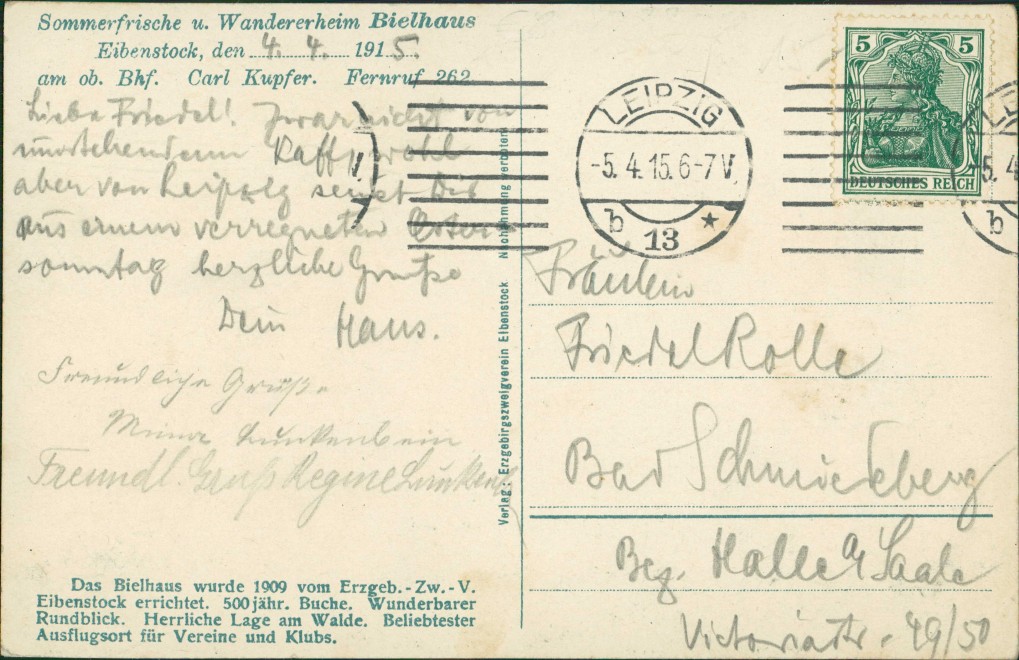 Sommerfrische u. Wandererheim Bielhaus
Eibenstock, den 4. 4. 1915.
am ob. Bhf. Carl Kupfer. Fernruf 262
Liebe Friedel! Zwar nicht von
umstehendem Kaff, wohl
aber von Leipzig sendet Dir
aus einem verregneten Oster-
sonntag herzliche Grüße
Dein Hans.
Freundliche Grüße
Minna Lunkenbein
Freundl. Gruß Regine Lunkenb
Das Bielhaus wurde 1909 vom Erzgeb.-Zw.-V.
Eibenstock errichtet. 500jähr. Buche. Wunderbarer
Rundblick. Herrliche Lage am Walde. Beliebtester
Ausflugsort für Vereine und Klubs.
Verlag: Erzgebirgszweigverein Eibenstock Nachahmung verboten
LEIPZIG
-5.4.15.6-7V.
b 13 *
5 5
DEUTSCHES REICH
LE
-5.4
b
Fräulein
Friedel Kolle
Bad Schmiedeberg
Bez. Halle a/ Saale
Victoriastr. 49/50